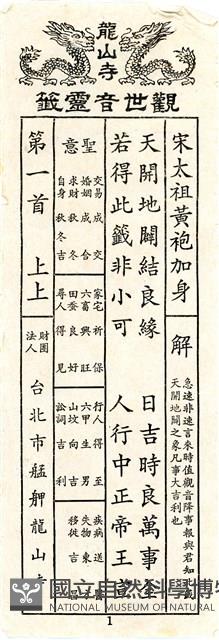 龍山寺
觀世音靈籤
宋太祖黃袍加身
解
急速非速言來時值觀音降事報與君知
天開地闢之象凡事大吉利也
天開地闢結良緣 日吉時良萬事全
若得此籤非小可 人行中正帝王宣
聖意
交易 成交
婚姻 成合
求財 秋冬
自身 秋冬吉
家宅 祈保
六畜 興旺
田蚕 良好
尋人 得見
行人 得至
六甲 生男
山坟 向吉
訟詞 吉利
疾病 送
失物 東
移徙 吉
第一首 上上
財團法人 台北市艋舺龍山寺
國立自然科學博物
NATIONAL MUSEUM OF NATURAL
1